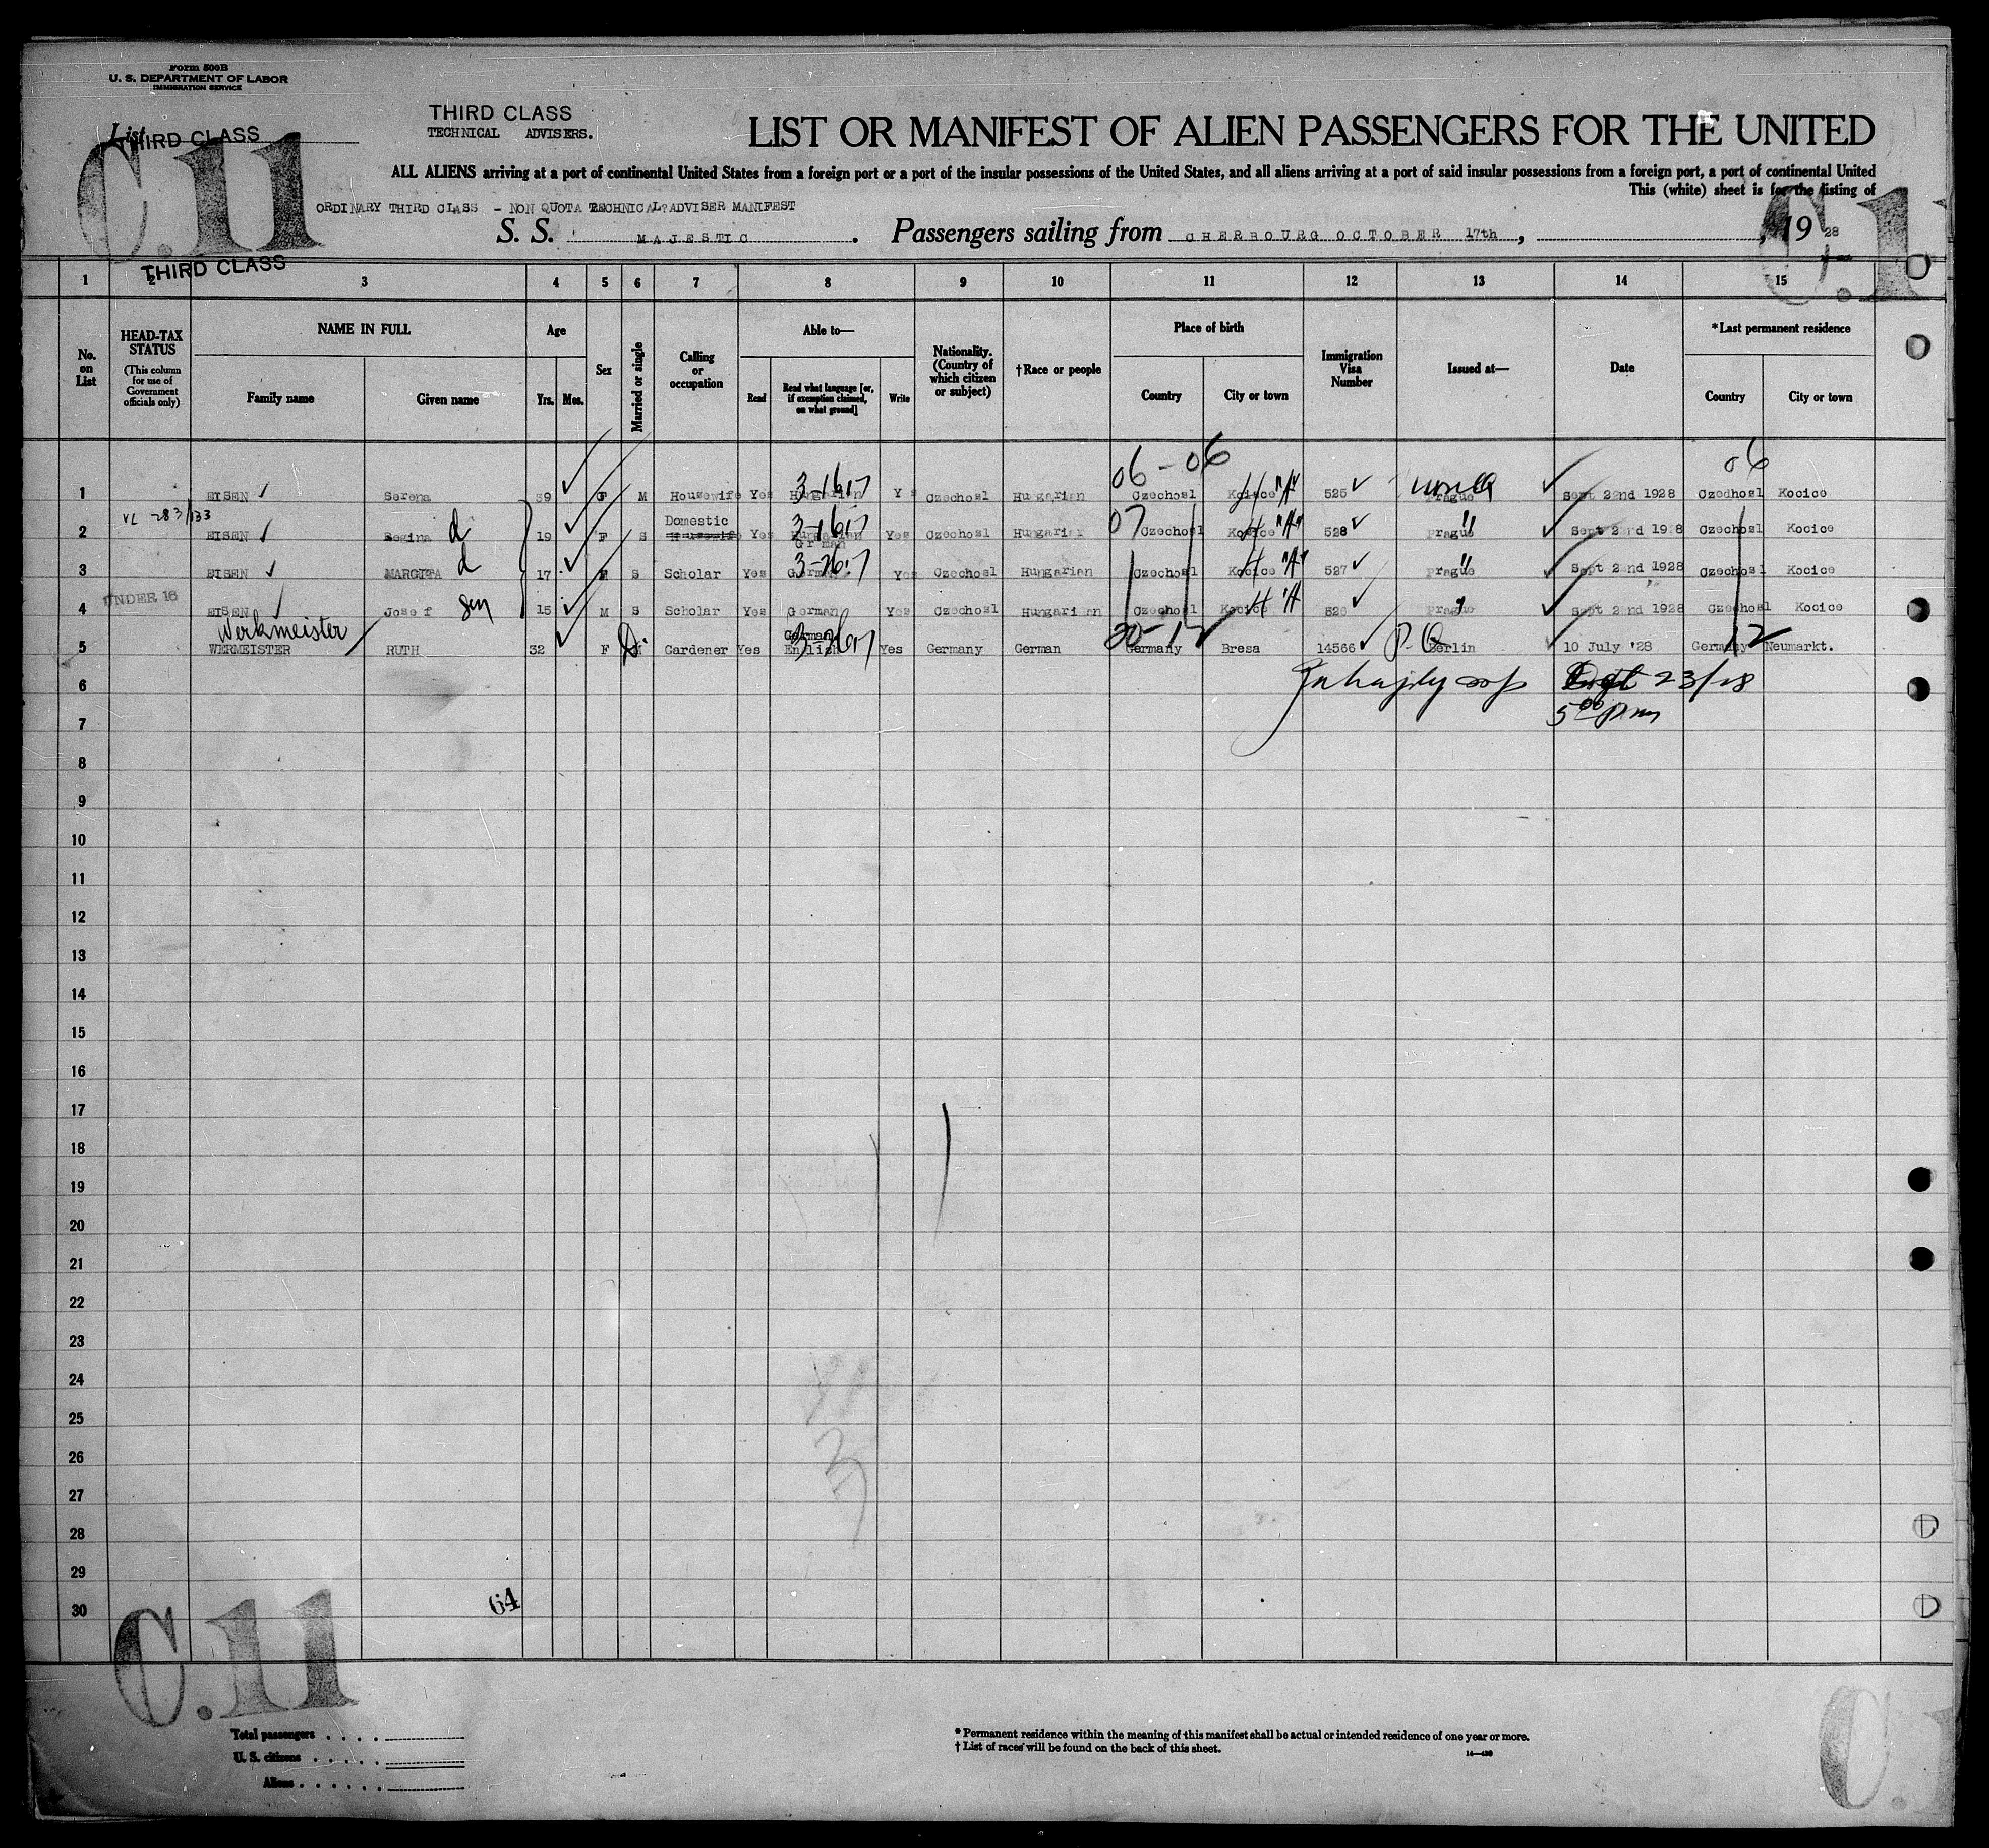 Form 500B
U. S. DEPARTMENT OF LABOR
IMMIGRATION SERVICE
List
THIRD CLASS
THIRD CLASS
TECHNICAL ADVISERS.
LIST OR MANIFEST OF ALIEN PASSENGERS FOR THE UNITED
C.11
ALL ALIENS arriving at a port of continental United States from a foreign port or a port of the insular possessions of the United States, and all aliens arriving at a port of said insular possessions from a foreign port, a port of continental United
This (white) sheet is for the listing of
ORDINARY THIRD CLASS - NON QUOTA TECHNICAL ADVISER MANIFEST
S. S. MAJESTIC. Passengers sailing from CHERBOURG OCTOBER 17th, , 19 28
C.1
THIRD CLASS
1 2 3 4 5 6 7 8 9 10 11 12 13 14 15
No. on List
HEAD-TAX STATUS (This column for use of Government officials only)
NAME IN FULL
Family name Given name
Age
Yrs. Mos.
Sex
Married or single
Calling or occupation
Able to—
Read Read what language [or, if exemption claimed, on what ground] Write
Nationality. (Country of which citizen or subject)
†Race or people
Place of birth
Country City or town
Immigration Visa Number
Issued at—
Date
*Last permanent residence
Country City or town
06 - 06 06
1 EISEN Serena 39 F M Housewife Yes Hungarian 3-1617 Y Czechosl Hungarian Czechosl Kocice 525 Prague Sept 22nd 1928 Czechosl Kocice
VL -283/133
Domestic
2 EISEN Regina d 19 F S Housewife Yes Hungarian German Yes Czechosl Hungarian 07 Czechosl Kocice 528 Prague " Sept 22nd 1928 Czechosl Kocice
3 EISEN MARGITA d 17 F S Scholar Yes German Yes Czechosl Hungarian Czechosl Kocice 527 Prague " Sept 22nd 1928 Czechosl Kocice
UNDER 16
4 EISEN Josef 15 M S Scholar Yes German Yes Czechosl Hungarian Czechosl Kocice 526 Prague Sept 22nd 1928 Czechosl Kocice
Werkmeister
5 WERMEISTER RUTH 32 F D. Gardener Yes German English Yes Germany German Germany Bresa 14566 Berlin 10 July '28 Germany 12 Neumarkt.
6 23/28
7 5 00 pm
8
9
10
11
12
13
14
15
16
17
18
19
20
21
22
23
24
25
26
27
28
29
30
64
C.11
C.
Total passengers
U. S. citizens
Aliens
* Permanent residence within the meaning of this manifest shall be actual or intended residence of one year or more.
† List of races will be found on the back of this sheet.